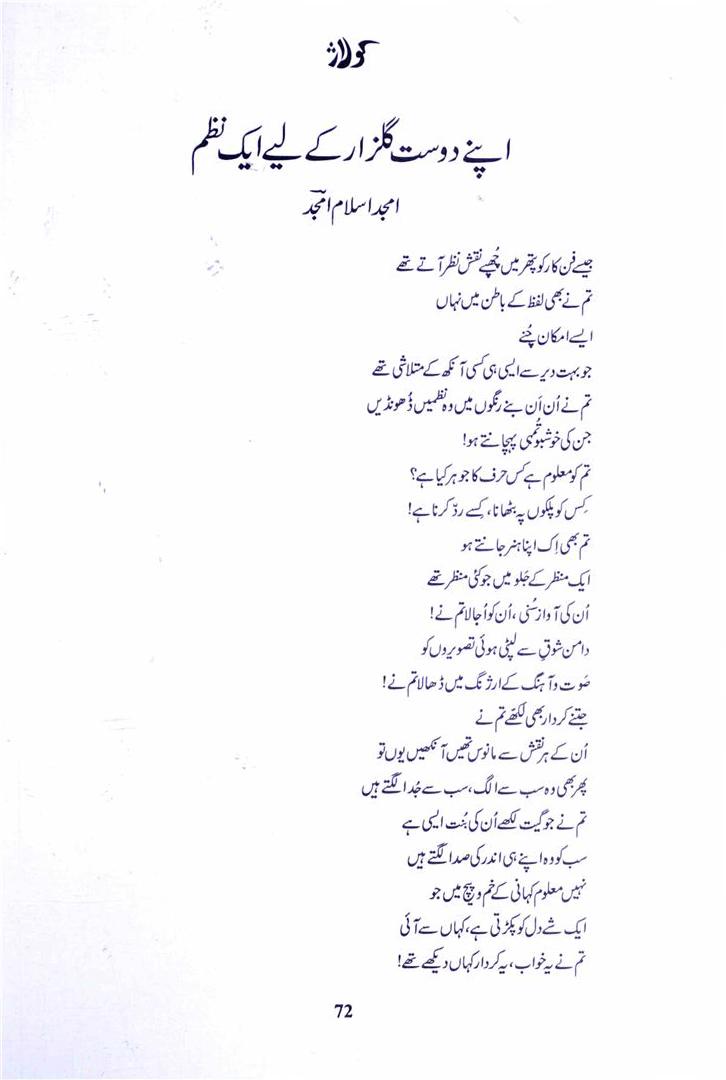 کولاژ
اپنے دوست گلزار کے لیے ایک نظم
امجد اسلام امجد
جیسے فن کار کو پتھر میں چُھپے نقش نظر آتے تھے
تم نے بھی لفظ کے باطن میں نہاں
ایسے امکان چُنے
جو بہت دیر سے ایسی ہی کسی آنکھ کے متلاشی تھے
تم نے اُن اَن بنے رنگوں میں وہ نظمیں ڈھونڈیں
جن کی خوشبو تُمہی پہچانتے ہو!
تم کو معلوم ہے کس حرف کا جوہر کیا ہے؟
کِس کو پلکوں پہ بٹھانا، کِسے ردّ کرنا ہے!
تم بھی اِک اپنا ہنر جانتے ہو
ایک منظر کے جَلو میں جو کئی منظر تھے
اُن کی آواز سُنی، اُن کو اُجالا تم نے!
دامن شوق سے لپٹی ہوئی تصویروں کو
صَوت و آہنگ کے ارژنگ میں ڈھالا تم نے!
جتنے کردار بھی لکھّے تم نے
اُن کے ہر نقش سے مانوس تھیں آنکھیں یوں تو
پھر بھی وہ سب سے الگ، سب سے جُدا لگتے ہیں
تم نے جو گیت لکھے اُن کی بُنت ایسی ہے
سب کو وہ اپنے ہی اندر کی صدا لگتے ہیں
نہیں معلوم کہانی کے خم و پیچ میں جو
ایک شے دل کو پکڑتی ہے، کہاں سے آئی
تم نے یہ خواب، یہ کردار کہاں دیکھے تھے!
72